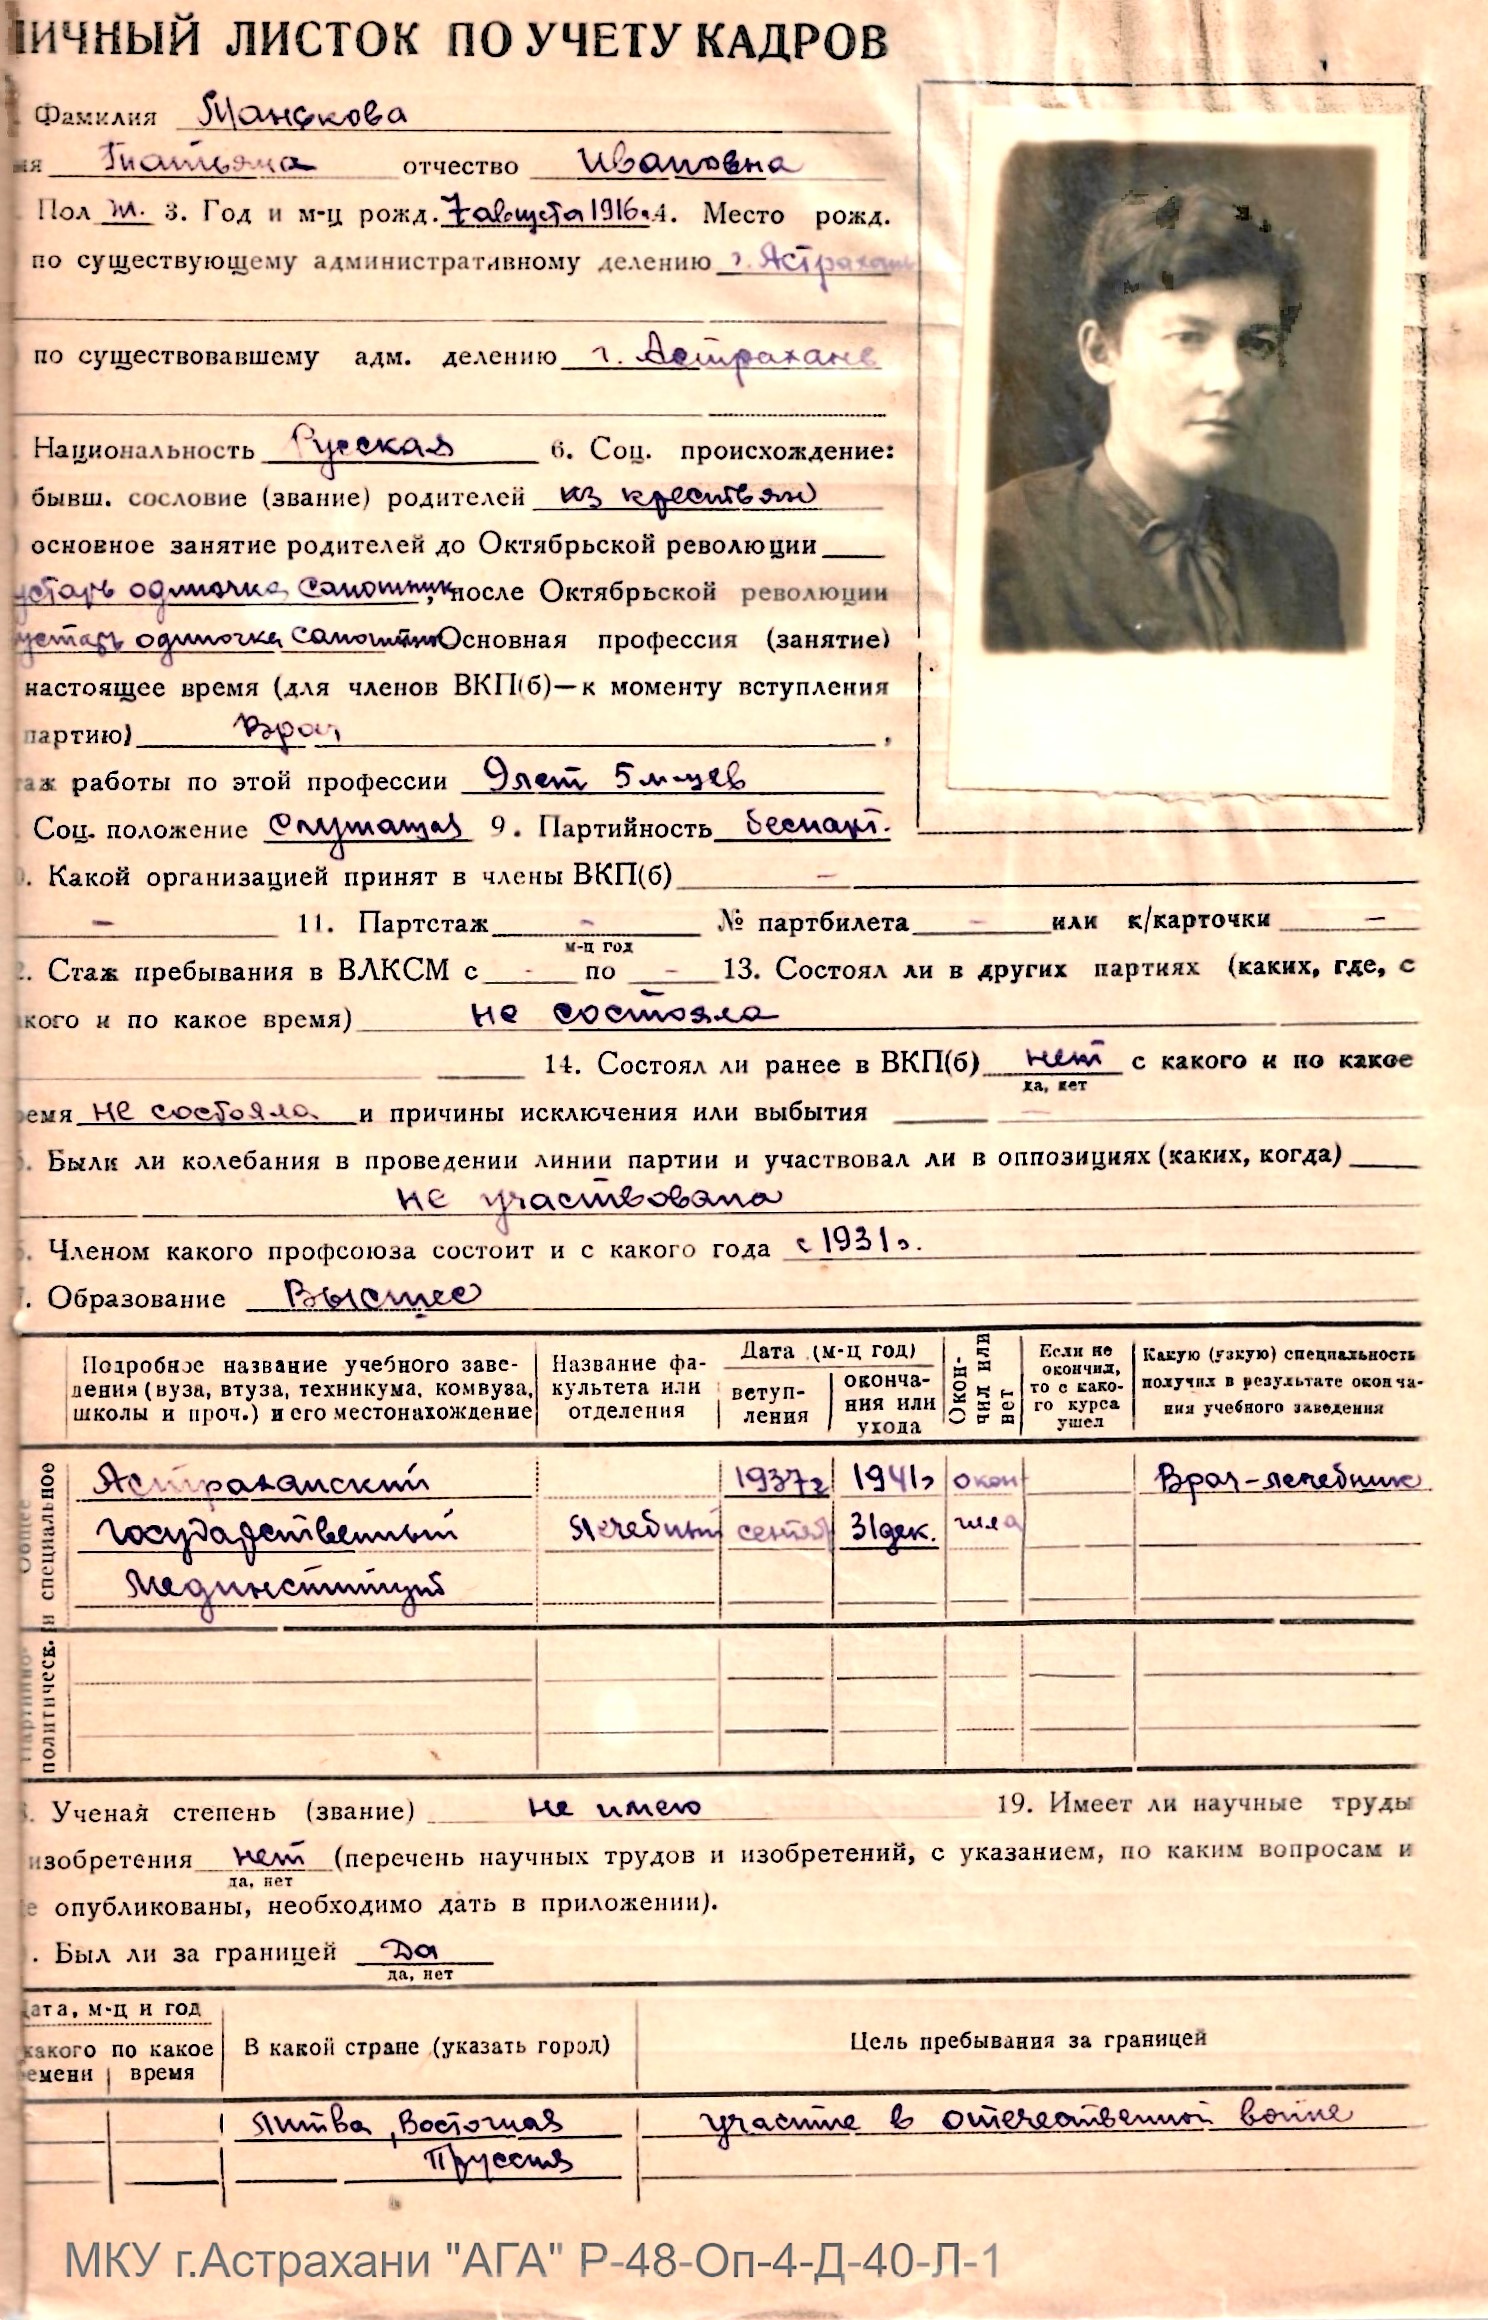 ЛИЧНЫЙ ЛИСТОК ПО УЧЕТУ КАДРОВ
Фамилия Манскова
мя Татьяна отчество Ивановна
Пол ж. 3. Год и м-ц рожд. 7 августа 1916 г. 4. Место рожд.
по существующему административному делению г. Астрахань
по существовавшему адм. делению г. Астрахань
Национальность Русская 6. Соц. происхождение:
бывш. сословие (звание) родителей из крестьян
основное занятие родителей до Октябрьской революции
устарь одиночка, сапожник, после Октябрьской революции
устарь одиночка сапожник Основная профессия (занятие)
настоящее время (для членов ВКП(б)—к моменту вступления
партию) Врач,
таж работы по этой профессии 9 лет 5 м-цев
Соц. положение Служащая 9. Партийность беспарт.
0. Какой организацией принят в члены ВКП(б) –
– 11. Партстаж – № партбилета – или к/карточки –
м-ц год
2. Стаж пребывания в ВЛКСМ с - по - 13. Состоял ли в других партиях (каких, где, с
акого и по какое время) не состояла
14. Состоял ли ранее в ВКП(б) нет с какого и по какое
да, нет
ремя не состояла и причины исключения или выбытия –
5. Были ли колебания в проведении линии партии и участвовал ли в оппозициях (каких, когда)
не участвовала
6. Членом какого профсоюза состоит и с какого года с 1931 г.
7. Образование Высшее
Подробное название учебного заведения (вуза, втуза, техникума, комвуза, школы и проч.) и его местонахождение
Название факультета или отделения
Дата (м-ц год)
вступления
окончания или ухода
Окончил или нет
Если не окончил, то с какого курса ушел
Какую (узкую) специальность получил в результате окончания учебного заведения
Общее и специальное
Астраханский 1937 г 1941 г окон Врач-лечебник
Государственный Лечебный сентяб 31 дек. чила
Мединститут
Партийно-политическ.
8. Ученая степень (звание) не имею 19. Имеет ли научные труды
изобретения нет (перечень научных трудов и изобретений, с указанием, по каким вопросам и
да, нет
е опубликованы, необходимо дать в приложении).
. Был ли за границей Да
да, нет
Дата, м-ц и год
какого емени
по какое время
В какой стране (указать город)
Цель пребывания за границей
Литва, Восточная участие в отечественной войне
Пруссия
МКУ г.Астрахани "АГА" Р-48-Оп-4-Д-40-Л-1